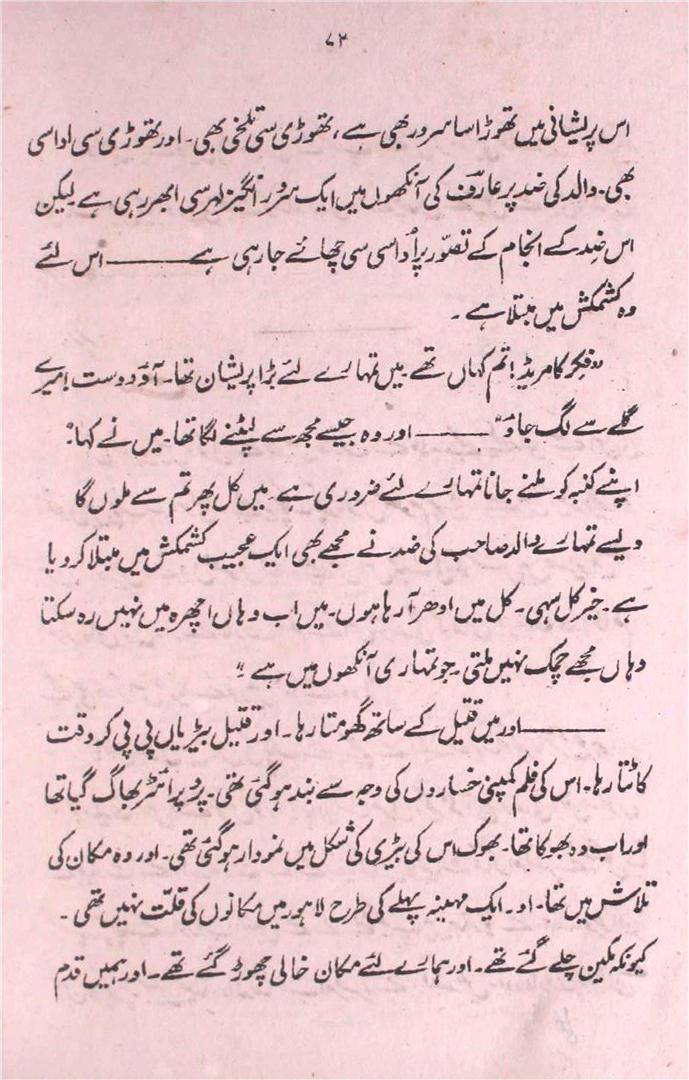 ۷۲
اس پریشانی میں تھوڑا سا سرور بھی ہے، تھوڑی سی تلخی بھی۔ اور تھوڑی سی اداسی
بھی۔ والد کی ضد پر عارف کی آنکھوں میں ایک سرور انگیز لہر سی ابھر رہی ہے لیکن
اس ضد کے انجام کے تصوّر پر اُداسی سی چھائے جا رہی ہے ——— اس لئے
وہ کشمکش میں مبتلا ہے۔
"فکر کامریڈ! تم کہاں تھے میں تمہارے لئے بڑا پریشان تھا۔ آؤ دوست! میرے
گلے سے لگ جاؤ" ——— اور وہ جیسے مجھ سے لپٹنے لگا تھا۔ میں نے کہا:
اپنے کنبہ کو ملنے جانا تمہارے لئے ضروری ہے۔ میں کل پھر تم سے ملوں گا
ویسے تمہارے والد صاحب کی ضد نے مجھے بھی ایک عجیب کشمکش میں مبتلا کر دیا
ہے۔ خیر کل سہی۔ کل میں ادھر آ رہا ہوں۔ میں اب وہاں اچھرہ میں نہیں رہ سکتا
وہاں مجھے چمک نہیں ملتی۔ جو تمہاری آنکھوں میں ہے"
——— اور میں قتیل کے ساتھ گھومتا رہا۔ اور قتیل بیڑیاں پی پی کر وقت
کاٹتا رہا۔ اس کی فلم کمپنی خساروں کی وجہ سے بند ہو گئی تھی۔ پروپرائٹر بھاگ گیا تھا
اور اب وہ بھوکا تھا۔ بھوک اس کی بیڑی کی شکل میں نمودار ہو گئی تھی۔ اور وہ مکان کی
تلاش میں تھا۔ اور ایک مہینہ پہلے کی طرح لاہور میں مکانوں کی قلّت نہیں تھی۔
کیونکہ مکین چلے گئے تھے۔ اور ہمارے لئے مکان خالی چھوڑ گئے تھے۔ اور ہمیں قدم